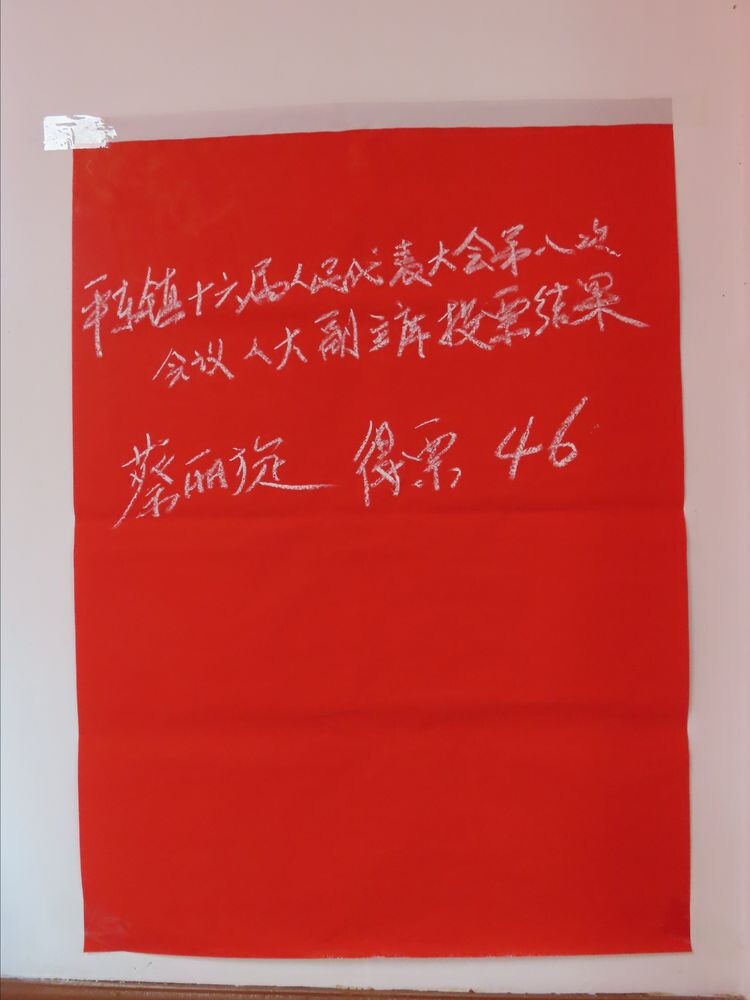 平东镇十六届人民代表大会第八次
会议人大副主席投票结果
蔡丽旋 得票 46